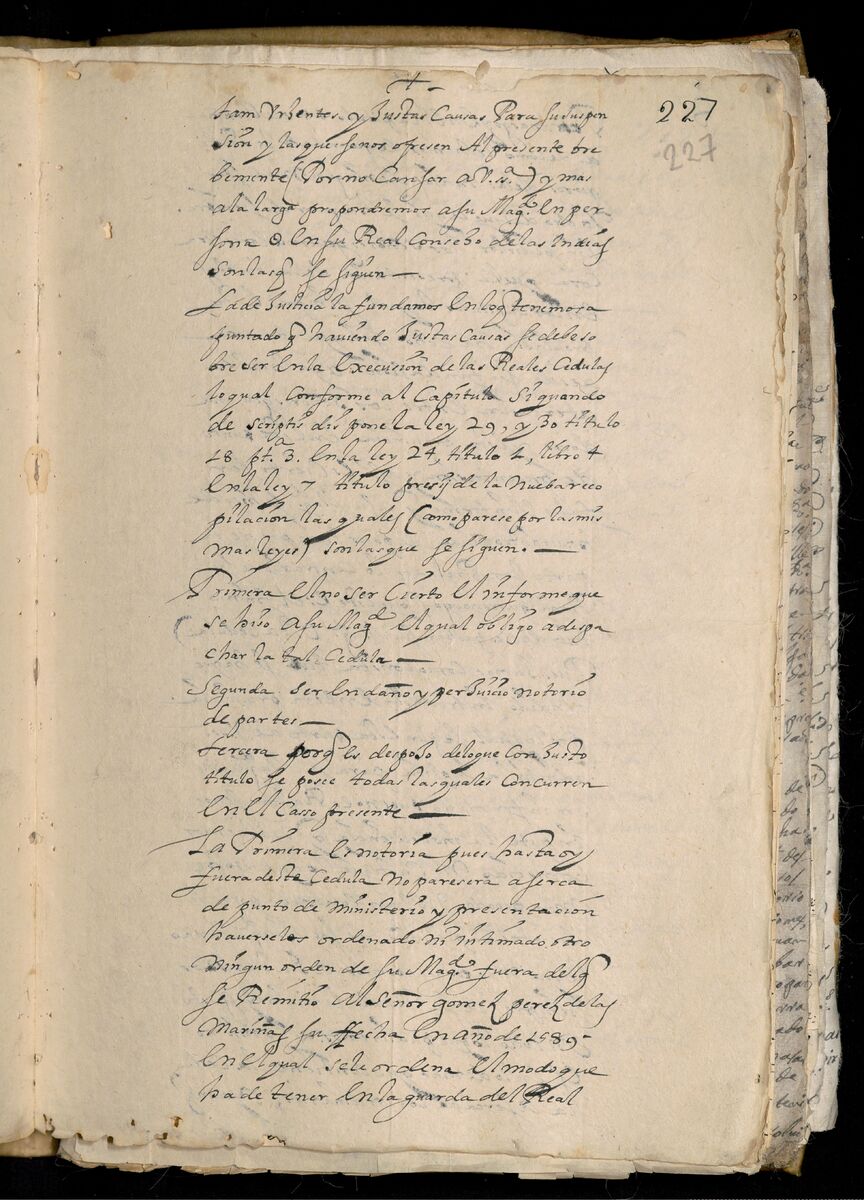 +
tam Urhentes y Justas Causas Para su suspen
sion y las que se nos ofresen Al presente bre
bemente (Por no Cansar a V. sª.) y mas
a la larga propondremos a su Magd. En per
sona O. En su Real Consebo de las Indias
son las q̃ se siguen —
La de Justicia la fundamos En lo q̃ tenemos a
puntado q̃ haviendo Justas Causas se debe so
bre ser En la Execusion de las Reales Cedulas
lo qual Conforme al Capitulo Si quando
de scriptis dispone la ley 29, y 30 titulo
18 ptª. 3. En la ley 24, titulo 4, libro 4
En la ley 7 titulo de la Nueba reco
pilacion las quales (como parese por las mis
mas leyes) son las que se siguen. —
Primera El no ser Cierto El informe que
se hiso A su Magd El qual obligo a despa
char la tal Cedula —
Segunda ser En daño y perJuicio notorio
de partes —
tercera porq̃ Es despoJo de lo que Con Justo
titulo se posee todas las quales Concurren
En El Casso presente —
La Primera Es notoria pues hasta oy
fuera deste Cedula No paresera aserca
de punto de Ministerio y presentacion
haverseles ordenado Ni intimado otro
Ningun orden de su Magd. fuera del q̃
se Remitio Al Señor gomez perez de las
Mariñas su ffecha En año de 1589-
En el qual se le ordena El modo que
ha de tener En la guarda del Real
227
227